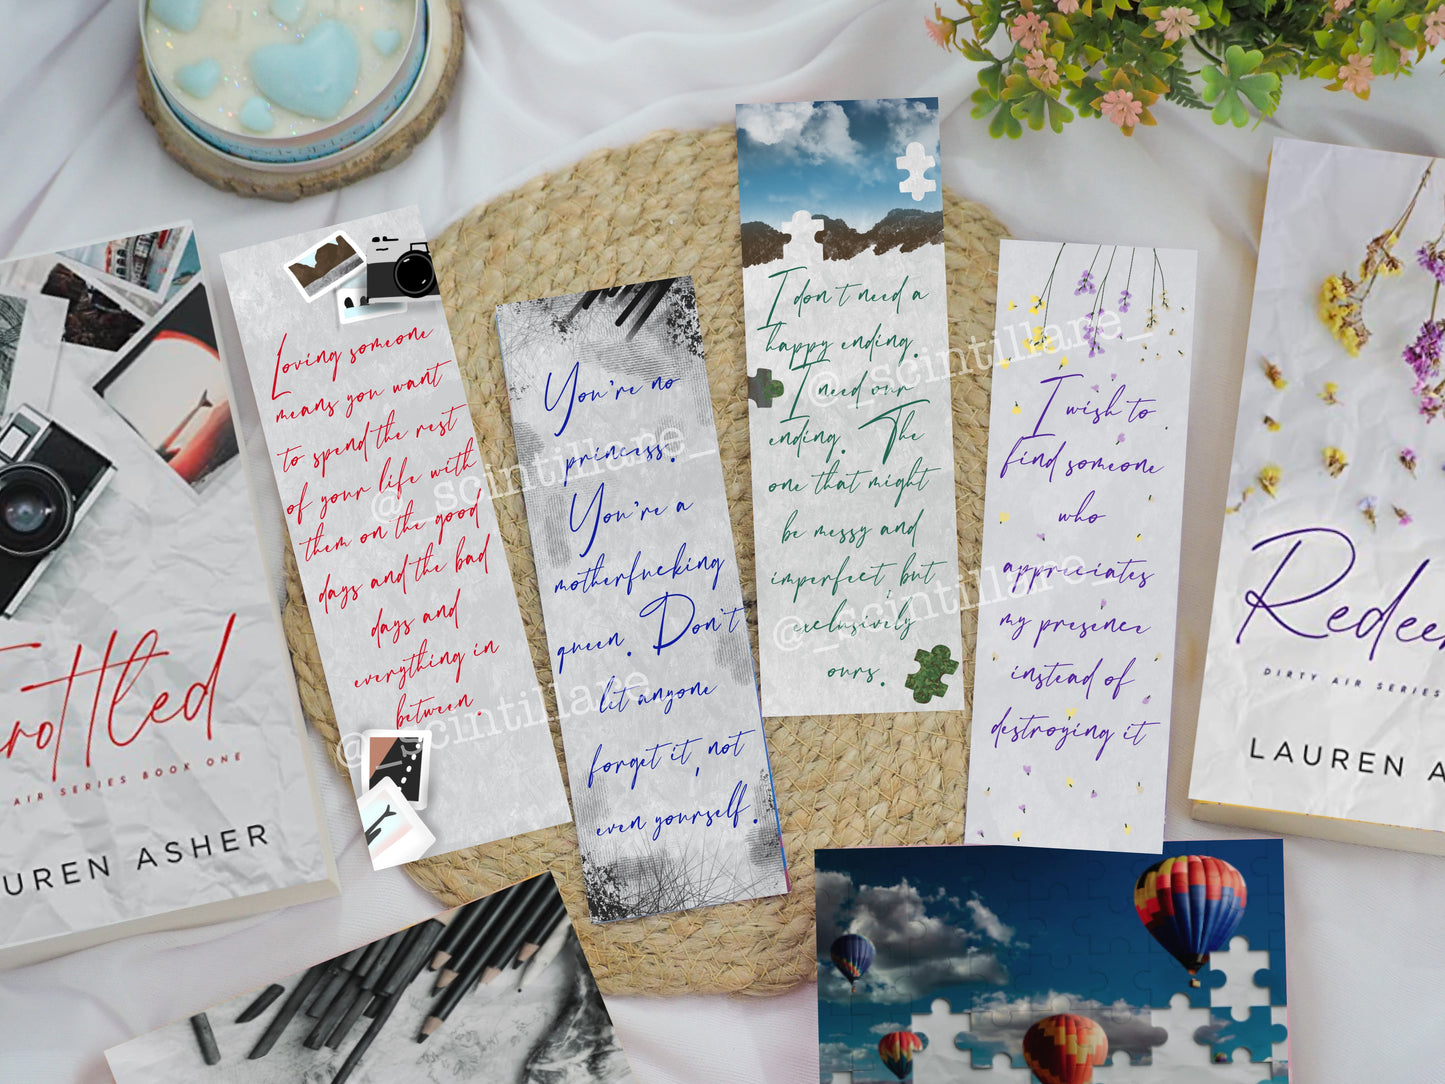 Throttled
AIR SERIES BOOK ONE
LAUREN ASHER
Loving someone
means you want
to spend the rest
of your life with
them on the good
days and the bad
days and
everything in
between.
You're no
princess.
You're a
motherfucking
queen. Don't
lit anyone
forget it, not
even yourself.
I don't need a
happy ending.
I need our
ending. The
one that might
be messy and
imperfect, but
exclusively
ours.
I wish to
find someone
who
appriciates
my presence
instead of
destroying it
DIRTY AIR SERIES
LAUREN A
@_scintillare_
@_scintillare_
@_scintillare_
@_scintillare_